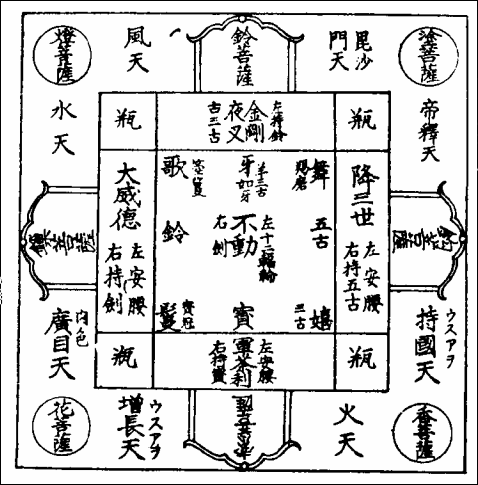 塗菩薩
毘沙
門天
鈴菩薩
風天
燈菩薩
帝釋天
水天
瓶
左持鈴
金剛
夜叉
右三古
瓶
降三世
左安腰
右持五古
舞
羯磨
五古
嬉
三古
牙
羊三古
如牙
不動
左十二輻輪
右劍
寶
歌
箜篌
鈴
鬘
寶冠
大威德
左安腰
右持劍
瓶
軍荼利
左安腰
瓶
ウスアヲ
持國天
火天
香菩薩
ウスアヲ
增長天
肉色
廣目天
花菩薩